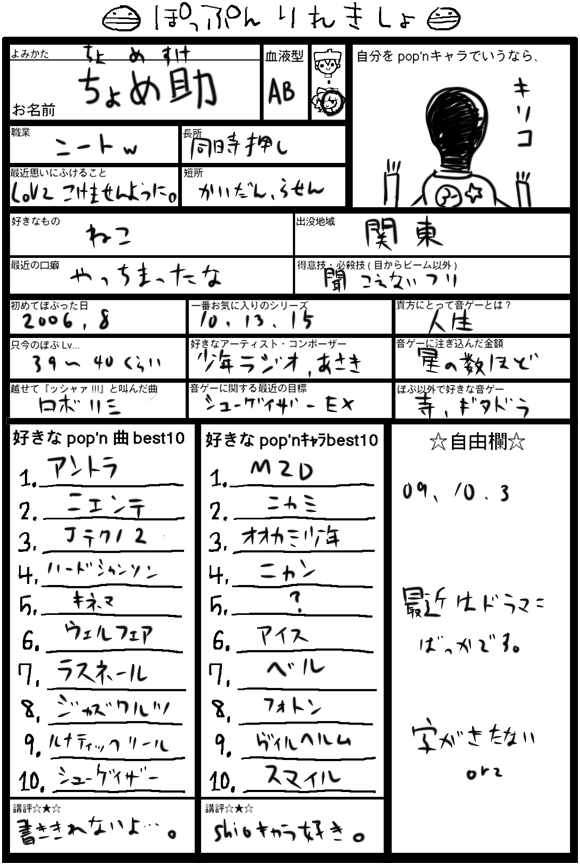 ぽっぷんりれきしょ
よみかた ちょめすけ
お名前 ちょめ助
血液型
AB
自分をpop'nキャラでいうなら、
キリコ
職業
ニートw
長所
同時押し
最近思いにふけること
Lov2 こけませんように。
短所
かいだん、らせん
好きなもの
ねこ
出没地域
関東
最近の口癖
やっちまったな
得意技・必殺技(目からビーム以外)
聞こえないフリ
初めてぽぷった日
2006,8
一番お気に入りのシリーズ
10.13.15
貴方にとって音ゲーとは?
人生
只今のぽぷLv...
39〜40くらい
好きなアーティスト・コンポーザー
少年ラジオ,あさき
音ゲーに注ぎ込んだ金額
星の数ほど
越せて『ッシャァ!!!』と叫んだ曲
ロボリミ
音ゲーに関する最近の目標
シューゲイザーEX
ぽぷ以外で好きな音ゲー
寺,ギタドラ
好きなpop'n曲best10
1. アントラ
2. ニエンテ
3. Jテクノ2
4. ハードシャンソン
5. キネマ
6. ウェルフェア
7. ラスネール
8. ジャズワルツ
9. ルナティックリール
10. シューゲイザー
講評☆★☆
書ききれないよ…。
好きなpop'nキャラbest10
1. MZD
2. ニカミ
3. オオカミ少年
4. ニカン
5. ?
6. アイス
7. ベル
8. フォトン
9. ヴィルヘルム
10. スマイル
講評☆★☆
shioキャラ好き。
☆自由欄☆
09.10.3
最近はドラマニ
ばっかです。
字がきたない
orz